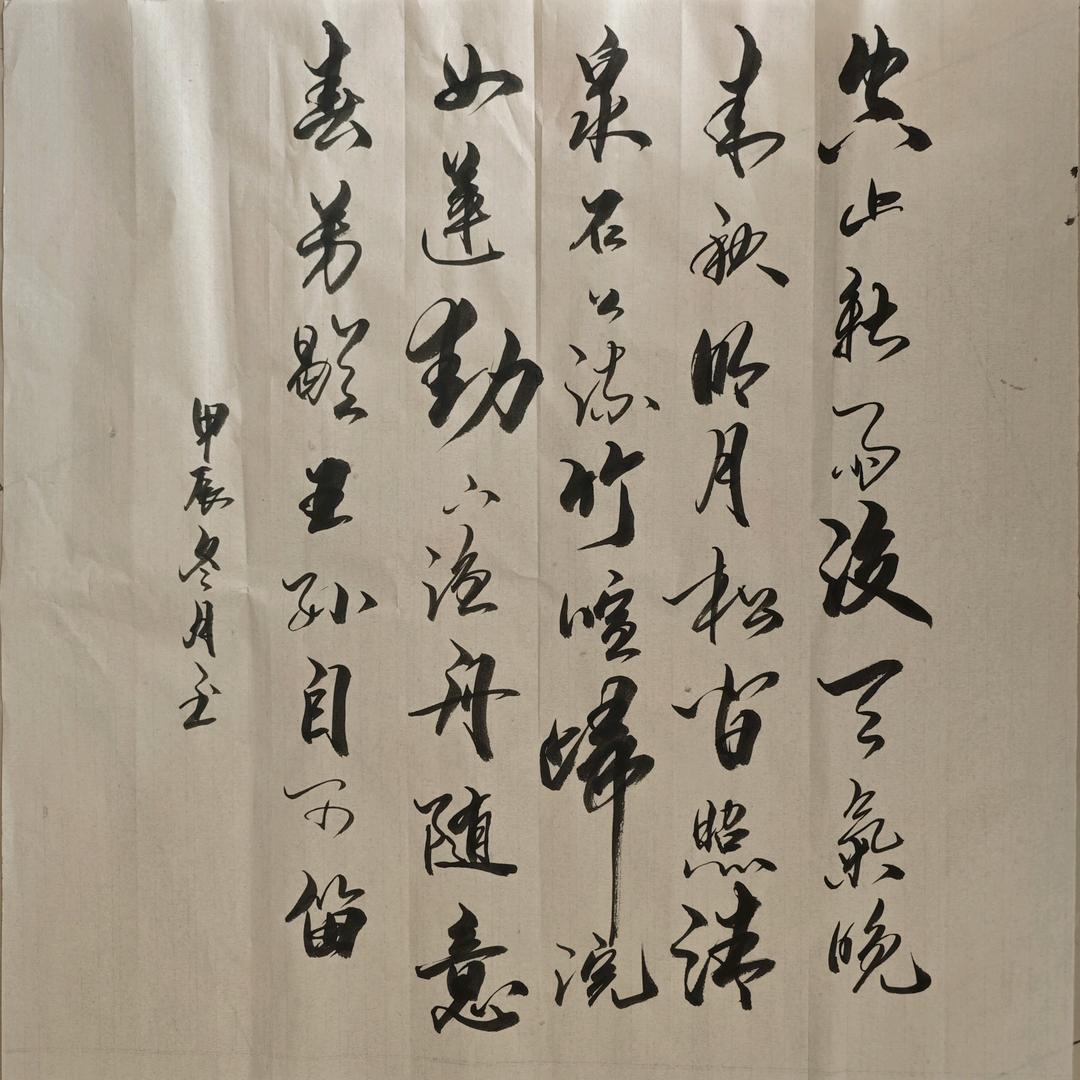 空山新雨後天氣晚
来秋明月松間照清
泉石上流竹喧歸浣
女蓮動下漁舟随意
春芳歇王孙自可留
甲辰冬月